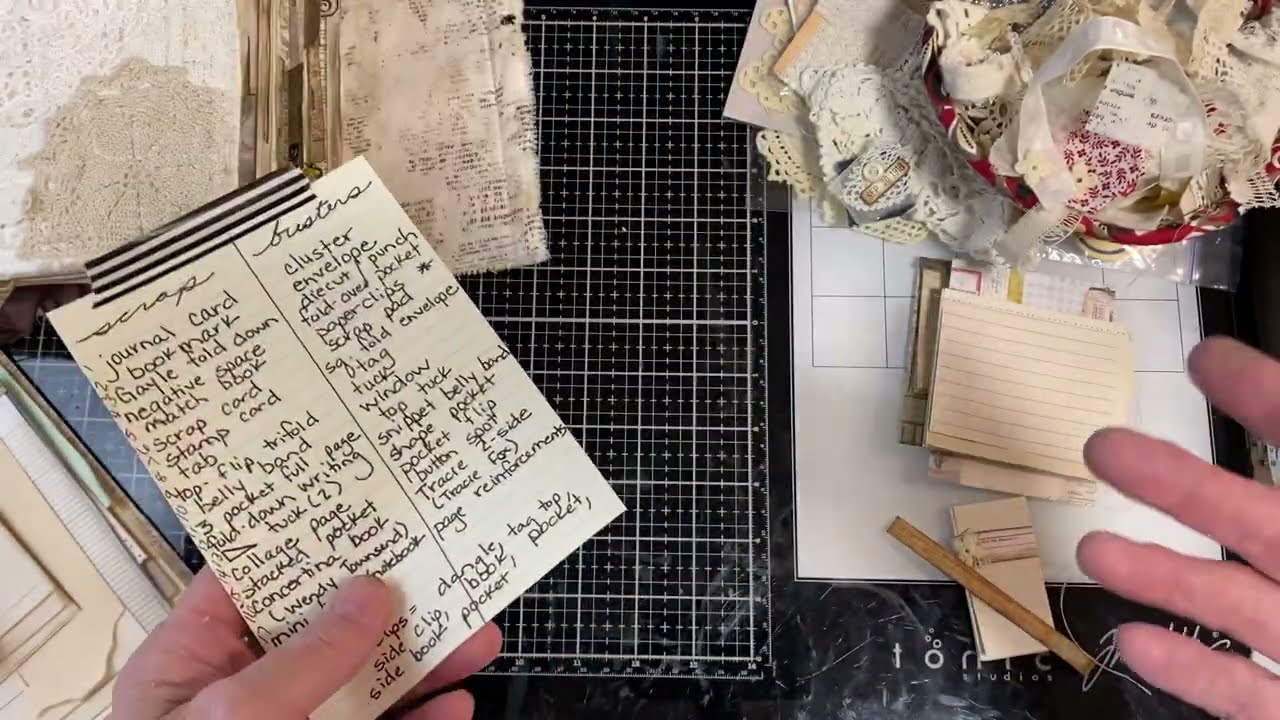 scrap busters
journal card
bookmark
Gayle fold down
negative space
match book
scrap card
stamp card
tab
top-flip trifold
belly band
3 pocket full page
fold-down writing
tuck (2)
collage page
stacked pocket
concertina book
(Wendy Townsend)
mini notebook
side
side
cluster
envelope
diecut/punch
fold-over pocket
paperclips *
scrap pad
sq. fold envelope
tag
tuck
window
top tuck
snippet belly band
shape pocket
pocket flip
button spool
(Tracie Fox) 2-side
page reinforcements
dangle, tag top,
clip, book, pocket,
book pocket
tonic
studios